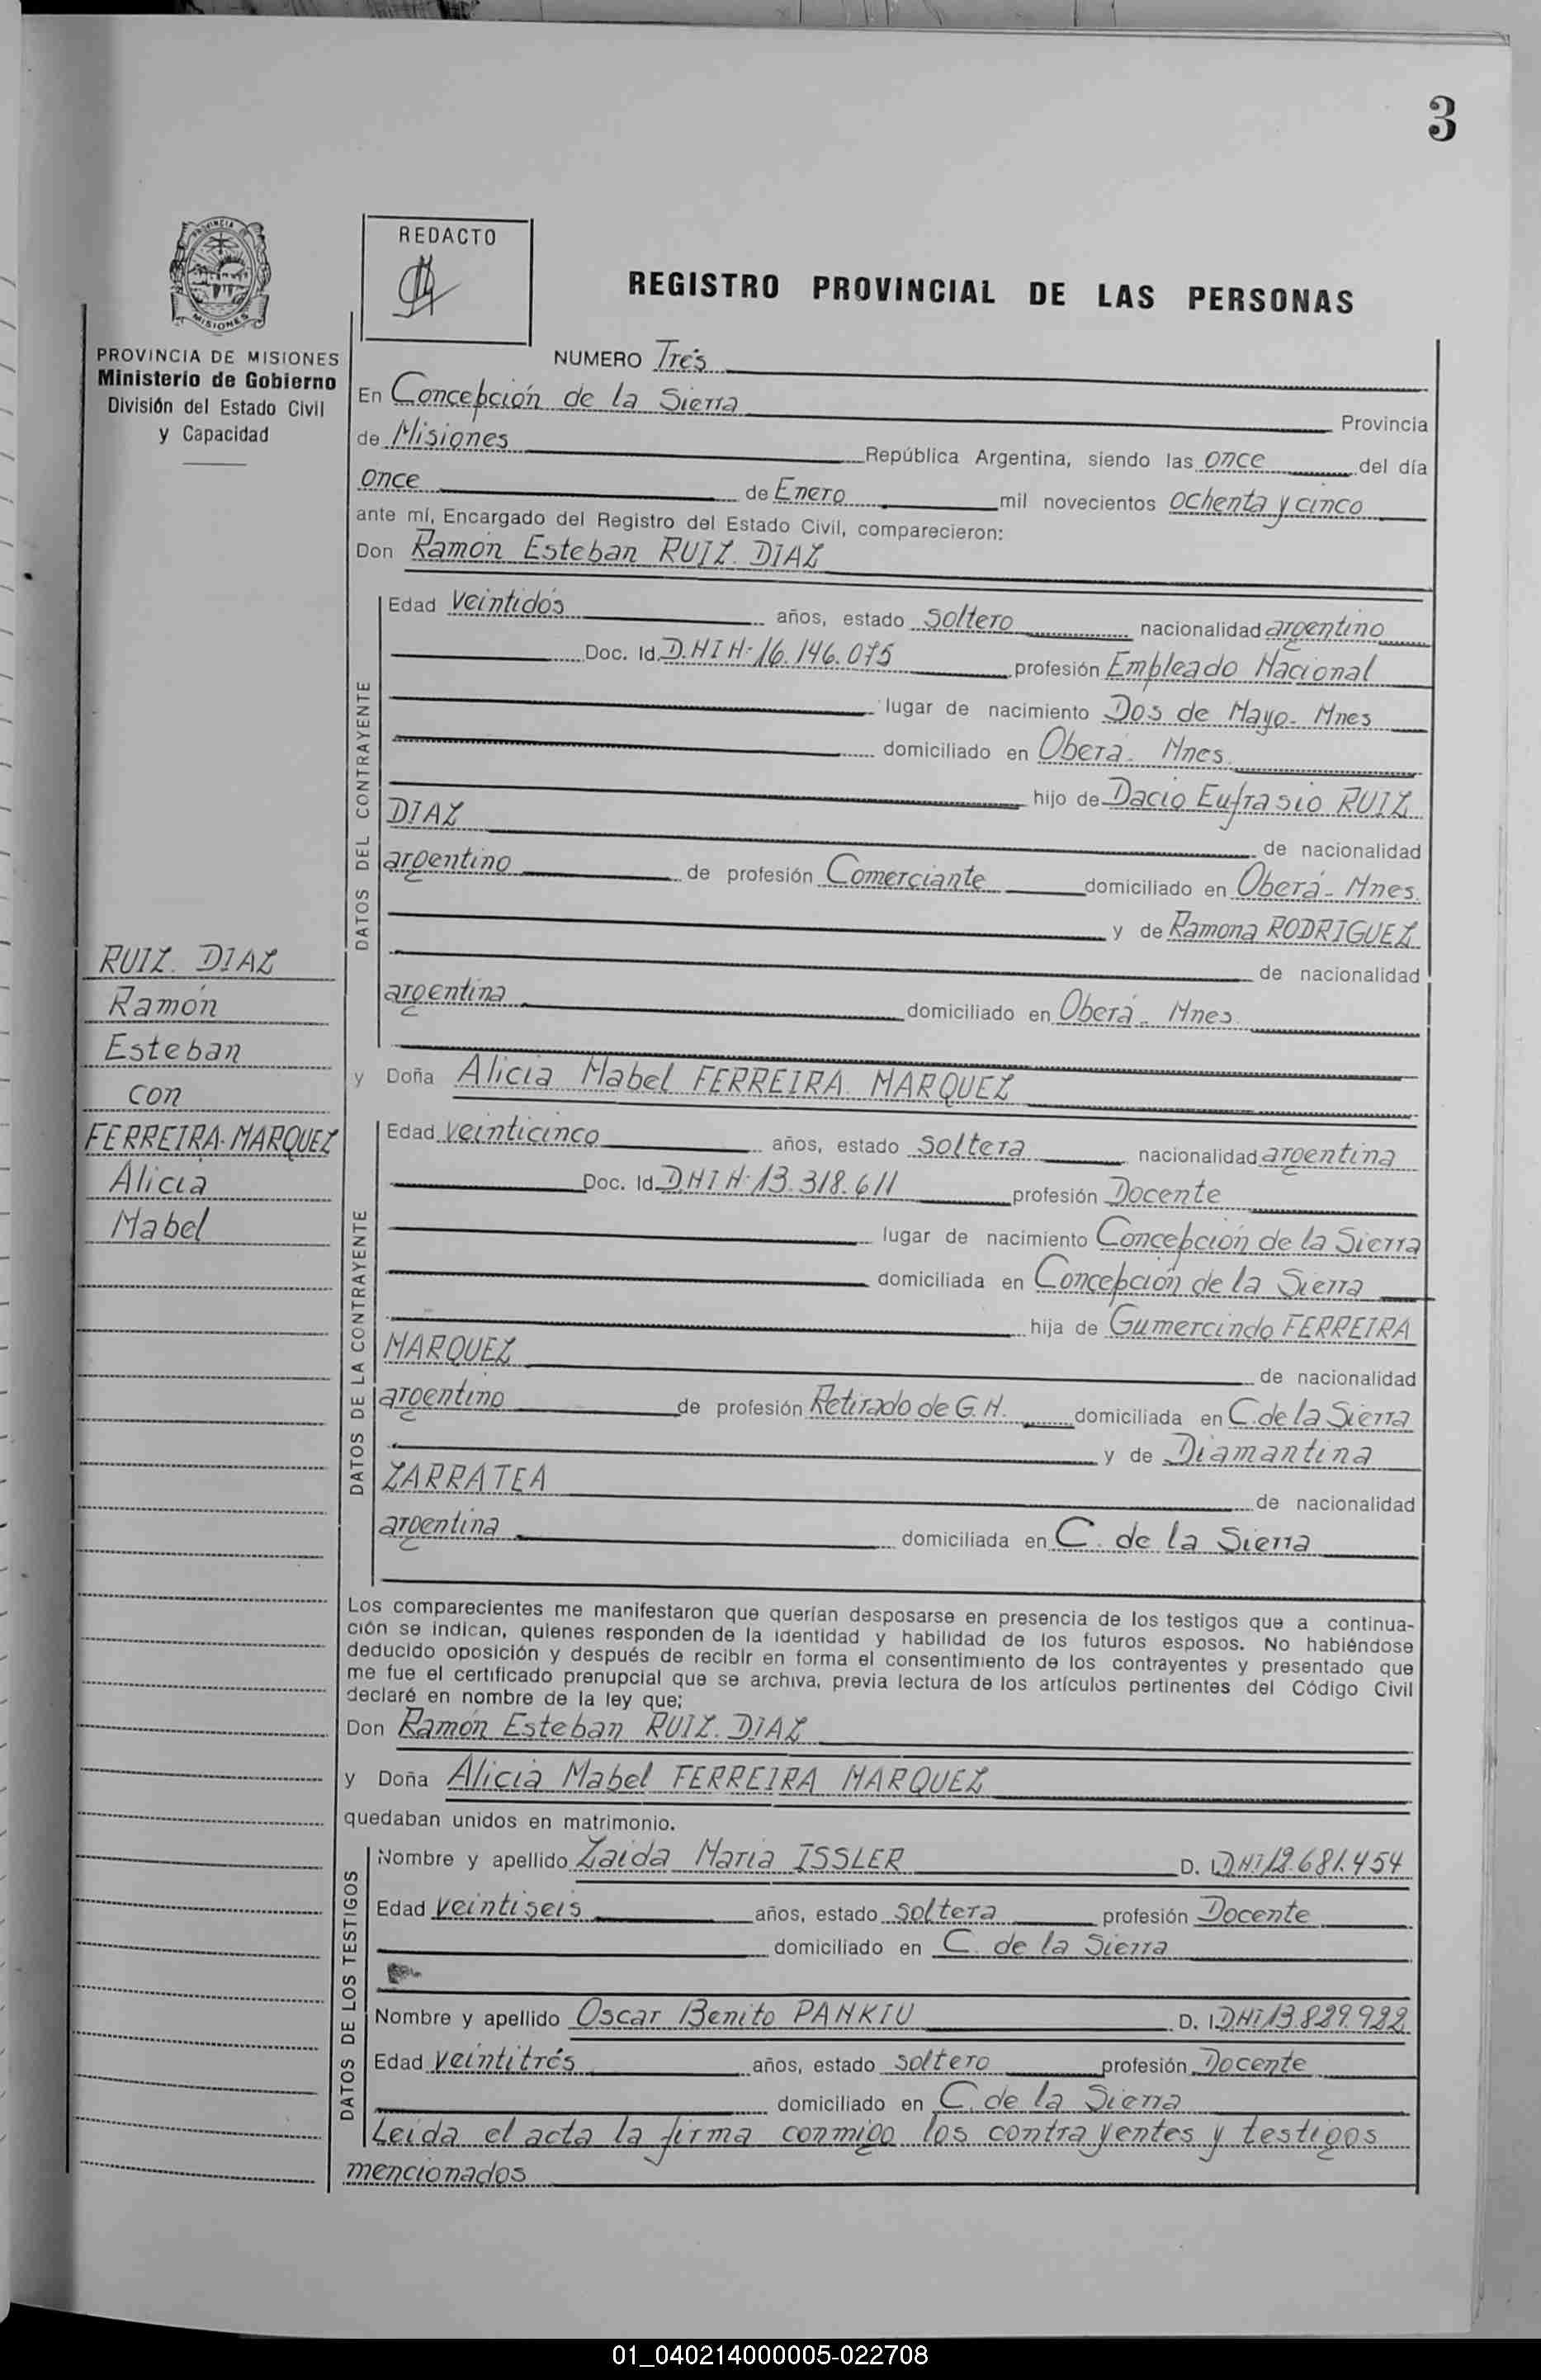 3
PROVINCIA DE
MISIONES
REDACTO
REGISTRO PROVINCIAL DE LAS PERSONAS
PROVINCIA DE MISIONES
Ministerio de Gobierno
División del Estado Civil
y Capacidad
NUMERO Tres
En Concepción de la Sierra Provincia
de Misiones República Argentina, siendo las once del día
once de Enero mil novecientos ochenta y cinco
ante mí, Encargado del Registro del Estado Civil, comparecieron:
Don Ramón Esteban RUIZ. DIAZ
DATOS DEL CONTRAYENTE
Edad veintidós años, estado soltero nacionalidad argentino
Doc. Id. D.N I N: 16.146.075 profesión Empleado Nacional
lugar de nacimiento Dos de Mayo- Mnes
domiciliado en Oberá- Mnes.
hijo de Dacio Eufrasio RUIZ
DIAZ de nacionalidad
argentino de profesión Comerciante domiciliado en Oberá- Mnes.
y de Ramona RODRIGUEZ
de nacionalidad
argentina domiciliado en Oberá- Mnes
RUIZ. DIAZ
Ramón
Esteban
con
FERREIRA-MARQUEZ
Alicia
Mabel
y Doña Alicia Mabel FERREIRA MARQUEZ
DATOS DE LA CONTRAYENTE
Edad veinticinco años, estado soltera nacionalidad argentina
Doc. Id. DNI N: 13.318.611 profesión Docente
lugar de nacimiento Concepción de la Sierra
domiciliada en Concepción de la Sierra
hija de Gumercindo FERREIRA
MARQUEZ de nacionalidad
argentino de profesión Retirado de G.N. domiciliada en C. de la Sierra
y de Diamantina
ZARRATEA de nacionalidad
argentina domiciliada en C. de la Sierra
Los comparecientes me manifestaron que querían desposarse en presencia de los testigos que a continua-
ción se indican, quienes responden de la identidad y habilidad de los futuros esposos. No habiéndose
deducido oposición y después de recibir en forma el consentimiento de los contrayentes y presentado que
me fue el certificado prenupcial que se archiva, previa lectura de los artículos pertinentes del Código Civil
declaré en nombre de la ley que:
Don Ramón Esteban RUIZ. DIAZ
y Doña Alicia Mabel FERREIRA MARQUEZ
quedaban unidos en matrimonio.
DATOS DE LOS TESTIGOS
Nombre y apellido Zaida Maria ISSLER D. I. DNI 12.681.454
Edad veintiseis años, estado soltera profesión Docente
domiciliado en C. de la Sierra
Nombre y apellido Oscar Benito PANKIU D. I. DNI 13.829.922
Edad veintitrés años, estado soltero profesión Docente
domiciliado en C. de la Sierra
Leida el acta la firma conmigo los contrayentes y testigos
mencionados
01_040214000005-022708